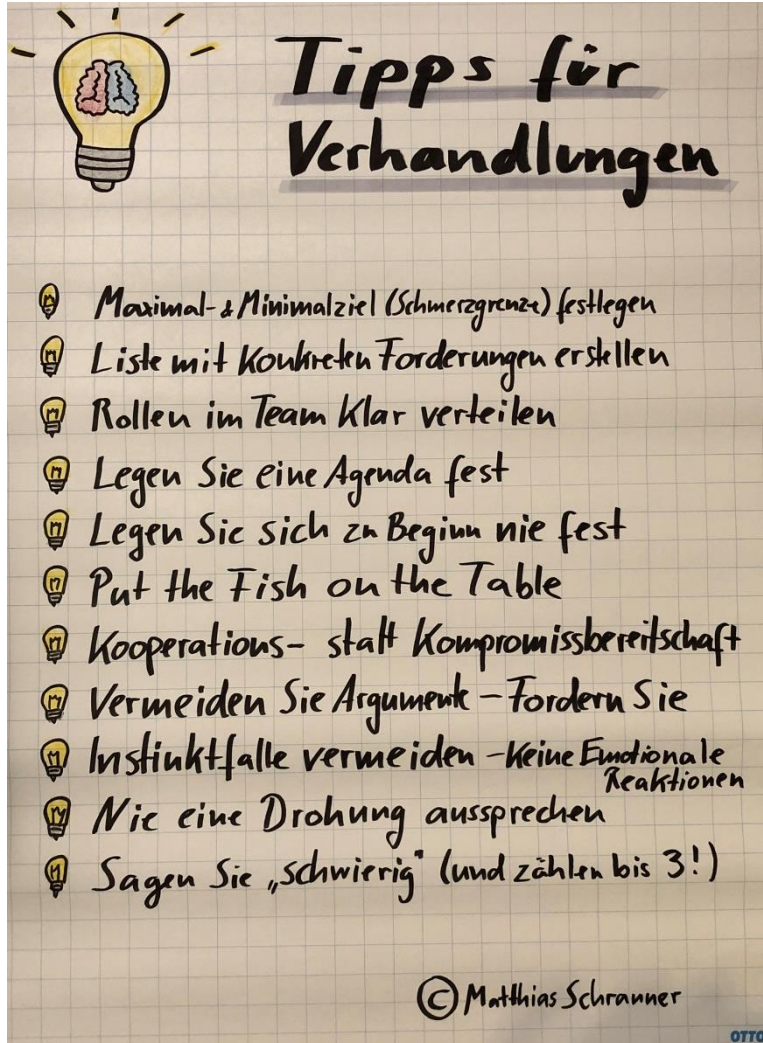 Tipps für
Verhandlungen
Maximal- & Minimalziel (Schmerzgrenze) festlegen
Liste mit konkreten Forderungen erstellen
Rollen im Team klar verteilen
Legen Sie eine Agenda fest
Legen Sie sich zu Beginn nie fest
Put the Fish on the Table
Kooperations- statt Kompromissbereitschaft
Vermeiden Sie Argumente – Fordern Sie
Instinktfalle vermeiden – Keine Emotionale
Reaktionen
Nie eine Drohung aussprechen
Sagen Sie „schwierig“ (und zählen bis 3!)
© Matthias Schranner
OTTO